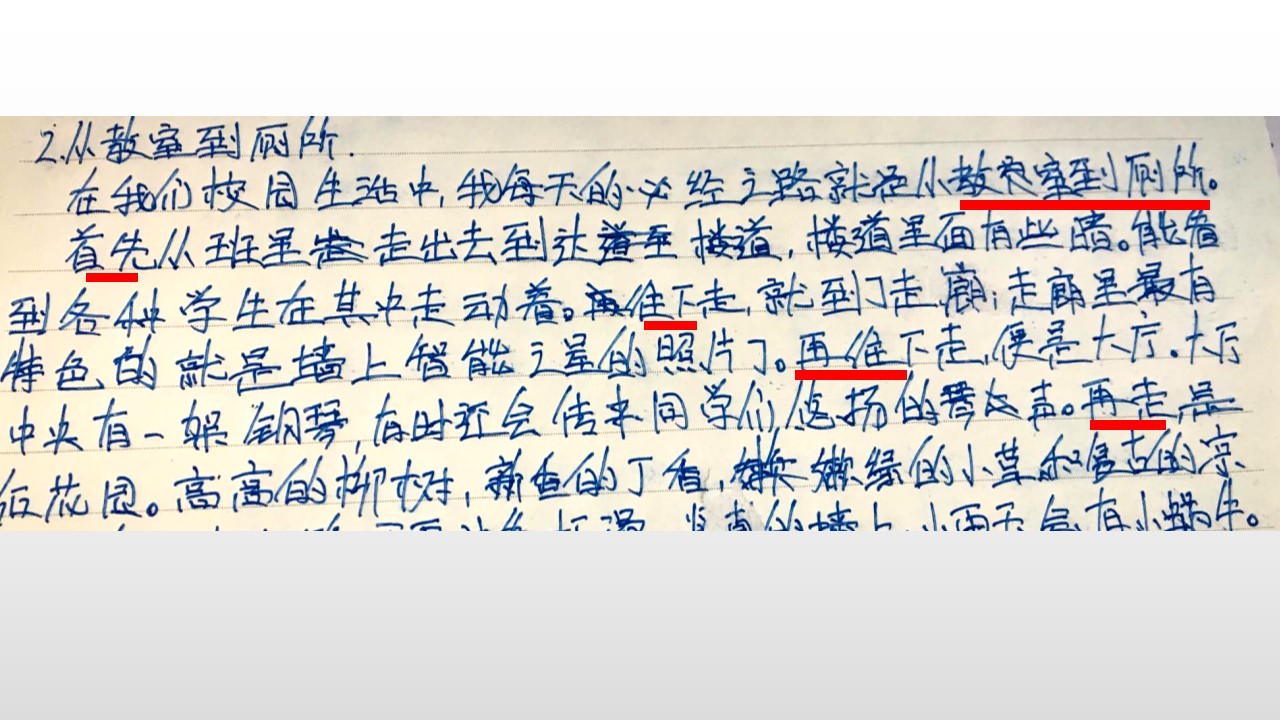 2.从教室到厕所.
在我们校园生活中,我每天的必经之路就是从教室到厕所。
首先从班里走出去到达楼道,楼道里面有些暗。能看
到各种学生在其中走动着。再往下走,就到了走廊;走廊里最有
特色的就是墙上智能之星的照片了。再往下走,便是大厅.大厅
中央有一架钢琴,有时还会传来同学们悠扬的琴声。再走是
后花园。高高的柳树,新鱼的丁香,嫩绿的小草和复古的凉
墙上,小雨天会有小蜗牛。